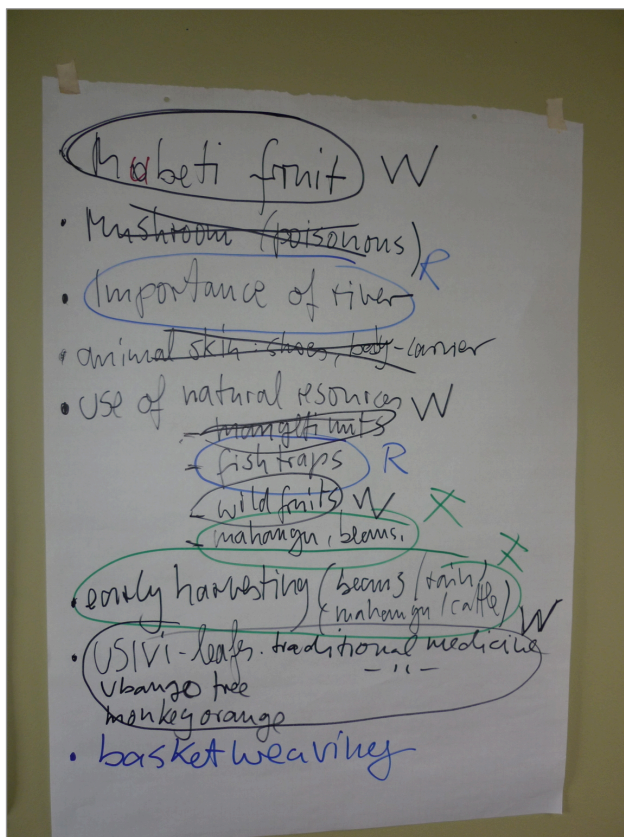 Mabeti fruit W
• Mushroom (poisonous) R
• Importance of river
• animal skin: shoes, body-carrier
• use of natural resources W
- mangetti nuts
- fish traps R
- wild fruits W
- mahangu, beans. X
• early harvesting (beans / rain / X
mahangu / cattle) W
• USIVI-leafes. traditional medicine
ubango tree - " -
monkey orange
• basketweaving